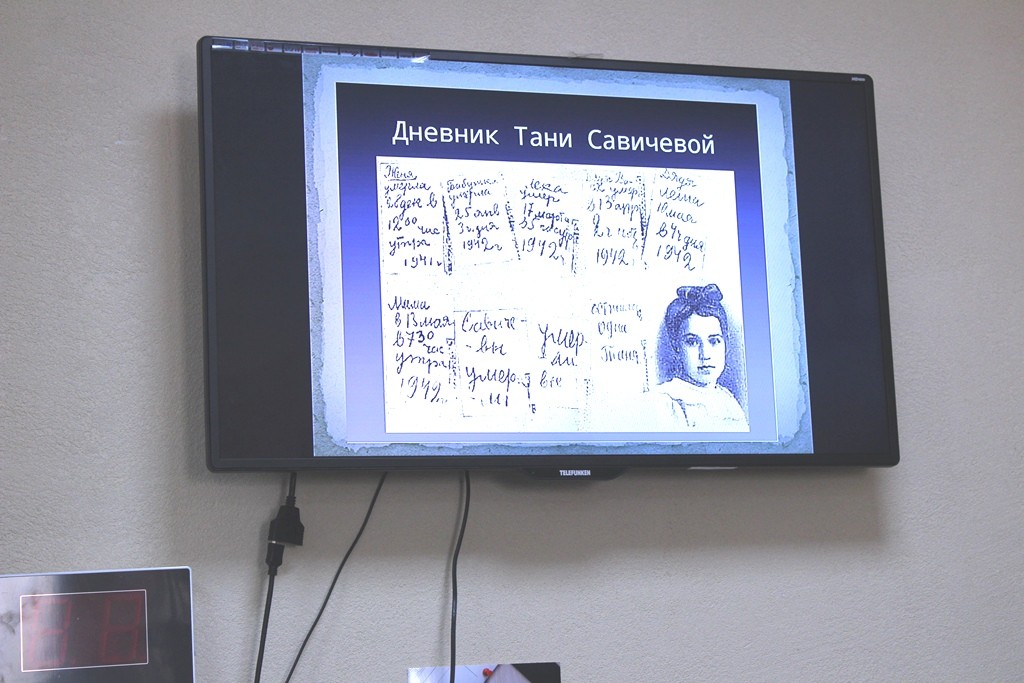 Дневник Тани Савичевой
Женя
умерла
28 дек в
12 00 час
утра
1941 г
Бабушка
умерла
25 янв
3 ч. дня
1942 г
Лека
умер
17 марта
в 5 час утр
1942 г
умер
13 апр
2 ч ночи
1942
Дядя
Леша
10 мая
в 4 ч дня
1942
Мама
в 13 мая
в 7 30
час
утра
1942
Савиче
-вы
умер.
-ли
умер
-ли
все
осталась
одна
Таня
TELEFUNKEN